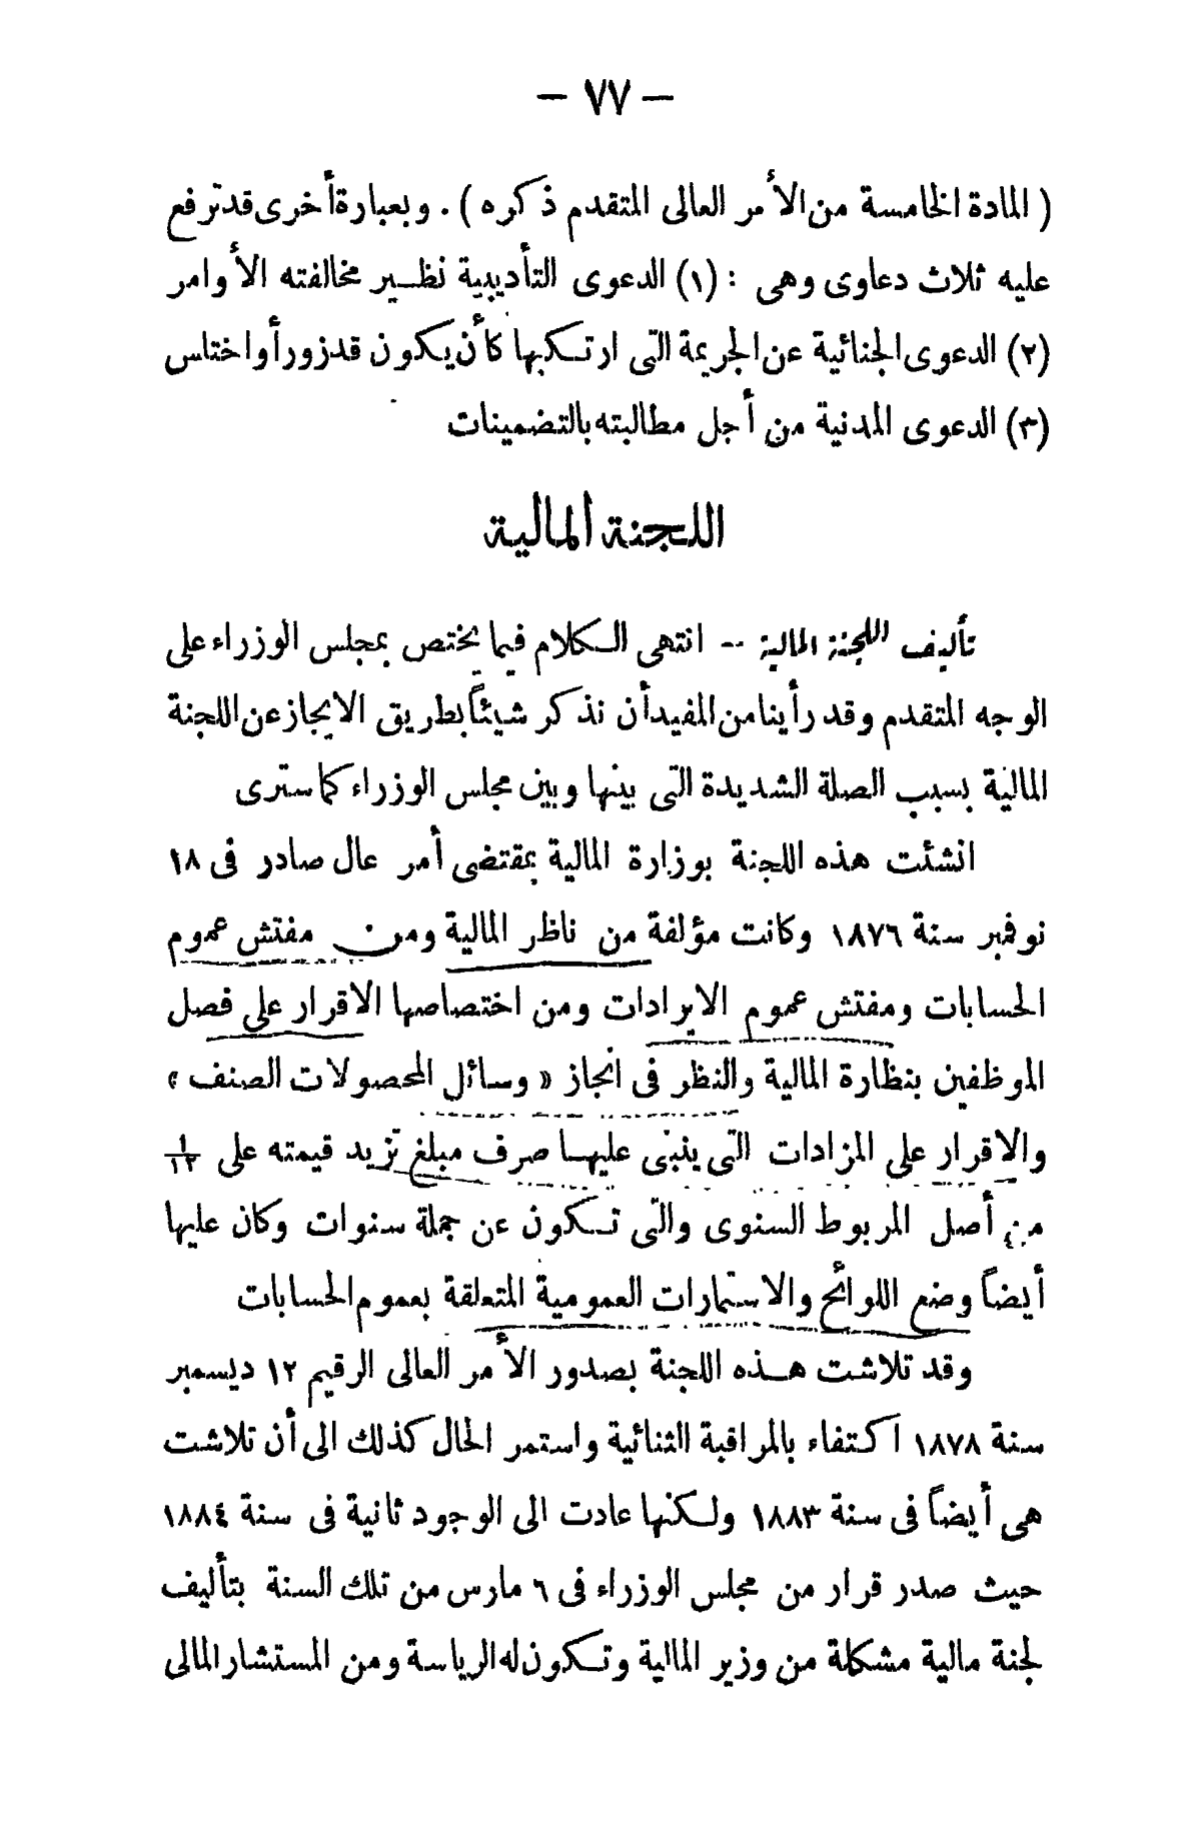 — ٧٧ —
( المادة الخامسة من الأمر العالى المتقدم ذكره ) . وبعبارة أخرى قد ترفع
عليه ثلاث دعاوى وهى : (١) الدعوى التأديبية نظير مخالفته الأوامر
(٢) الدعوى الجنائية عن الجريمة التى ارتكبها كأن يكون قد زور أو اختلس
(٣) الدعوى المدنية من أجل مطالبته بالتضمينات
اللجنة المالية
تأليف اللجنة المالية -- انتهى الكلام فيما يختص بمجلس الوزراء على
الوجه المتقدم وقد رأينا من المفيد أن نذكر شيئاً بطريق الايجاز عن اللجنة
المالية بسبب الصلة الشديدة التى بينها وبين مجلس الوزراء كما سترى
انشئت هذه اللجنة بوزارة المالية بمقتضى أمر عال صادر فى ١٨
نوفمبر سنة ١٨٧٦ وكانت مؤلفة من ناظر المالية ومن مفتش عموم
الحسابات ومفتش عموم الايرادات ومن اختصاصها الاقرار على فصل
الموظفين بنظارة المالية والنظر فى انجاز « وسائل المحصولات الصنف »
والاقرار على المزادات التى ينبنى عليها صرف مبلغ تزيد قيمته على ١/١٢
من أصل المربوط السنوى والتى تكون عن جملة سنوات وكان عليها
أيضاً وضع اللوائح والاستمارات العمومية المتعلقة بعموم الحسابات
وقد تلاشت هذه اللجنة بصدور الأمر العالى الرقيم ١٢ ديسمبر
سنة ١٨٧٨ اكتفاء بالمراقبة الثنائية واستمر الحال كذلك الى أن تلاشت
هى أيضاً فى سنة ١٨٨٣ ولكنها عادت الى الوجود ثانية فى سنة ١٨٨٤
حيث صدر قرار من مجلس الوزراء فى ٦ مارس من تلك السنة بتأليف
لجنة مالية مشكلة من وزير المالية وتكون له الرياسة ومن المستشار المالى